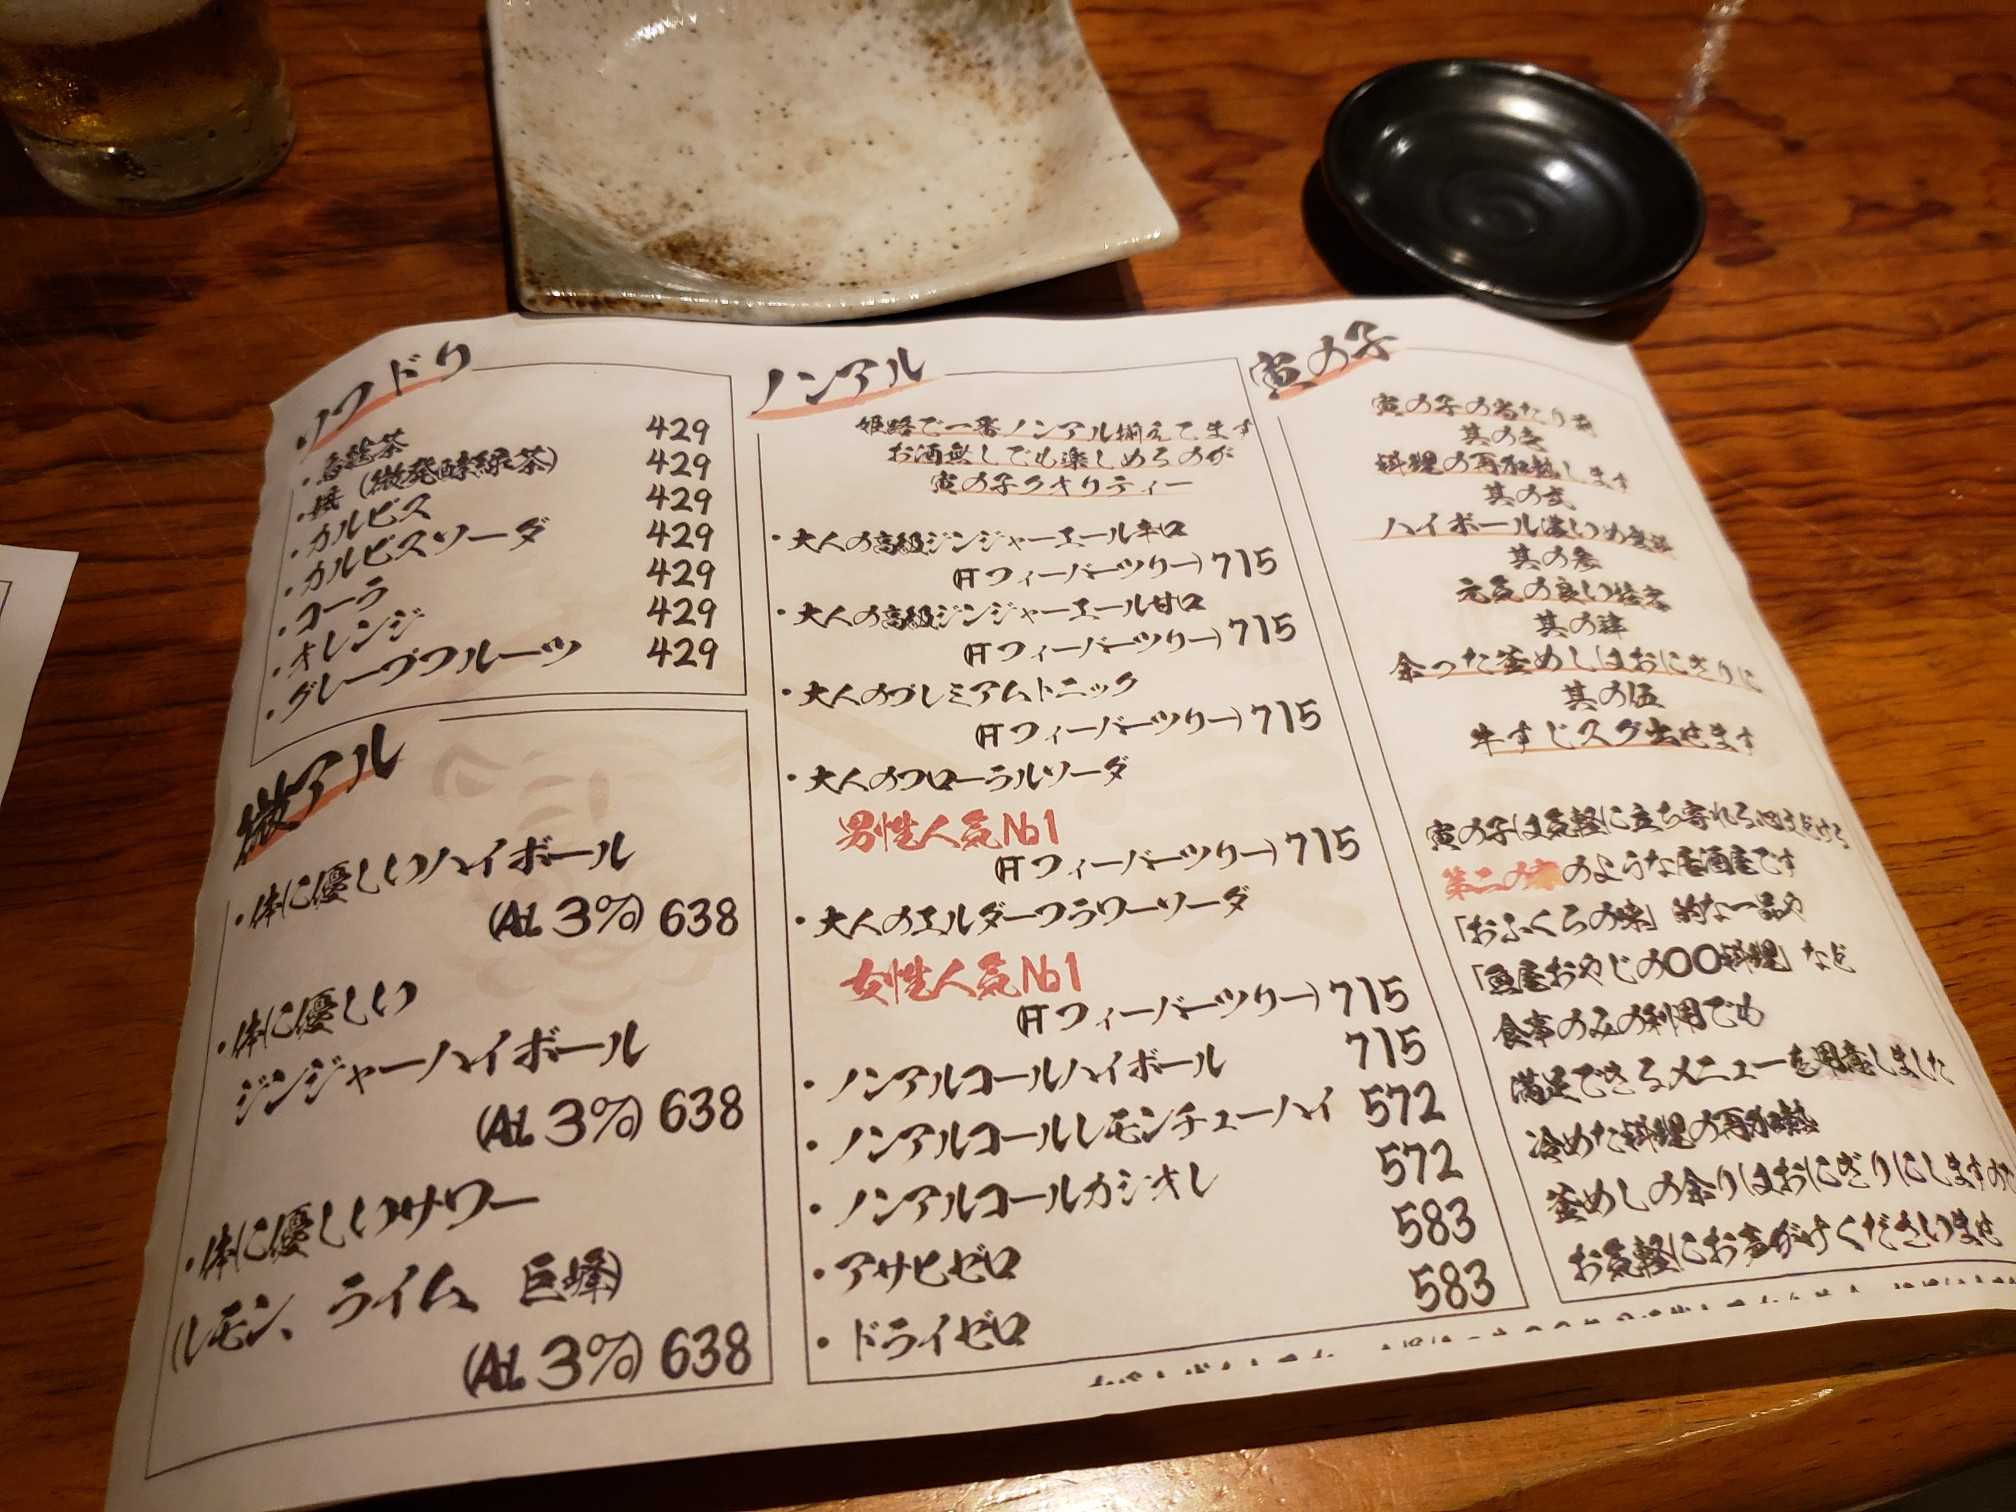 ソフドリ
・烏龍茶 429
(微発酵緑茶) 429
・カルピス 429
・カルピスソーダ 429
・コーラ 429
・オレンジ 429
・グレープフルーツ 429
微アル
・体に優しいハイボール
(Al.3%) 638
・体に優しい
ジンジャーハイボール
(Al.3%) 638
・体に優しいサワー
(レモン、ライム、巨峰)
(Al.3%) 638
ノンアル
姫路で一番ノンアル揃えてます
お酒無しでも楽しめるのが
寅の子クオリティー
・大人の高級ジンジャーエール辛口
(㊒フィーバーツリー) 715
・大人の高級ジンジャーエール甘口
(フィーバーツリー) 715
・大人のプレミアムトニック
(フィーバーツリー) 715
・大人のフローラルソーダ
男性人気No1
(フィーバーツリー) 715
・大人のエルダーフラワーソーダ
女性人気No1
(フィーバーツリー) 715
・ノンアルコールハイボール 715
・ノンアルコールレモンチューハイ 572
・ノンアルコールカシオレ 572
・アサヒゼロ 583
・ドライゼロ 583
寅の子
寅の子の当たり前
其の壱
料理の再加熱します
其の弐
ハイボール濃いめ無料
其の参
元気の良い接客
其の肆
余った釜めしはおにぎりに
其の伍
牛すじスグ出せます
寅の子は気軽に立ち寄れる
第二の家のような居酒屋です
「おふくろの味」的な一品や
「魚屋おやじの〇〇料理」など
食事のみの利用でも
満足できるメニューを用意しました
冷めた料理の再加熱
釜めしの余りはおにぎりにしますので
お気軽にお声がけくださいませ